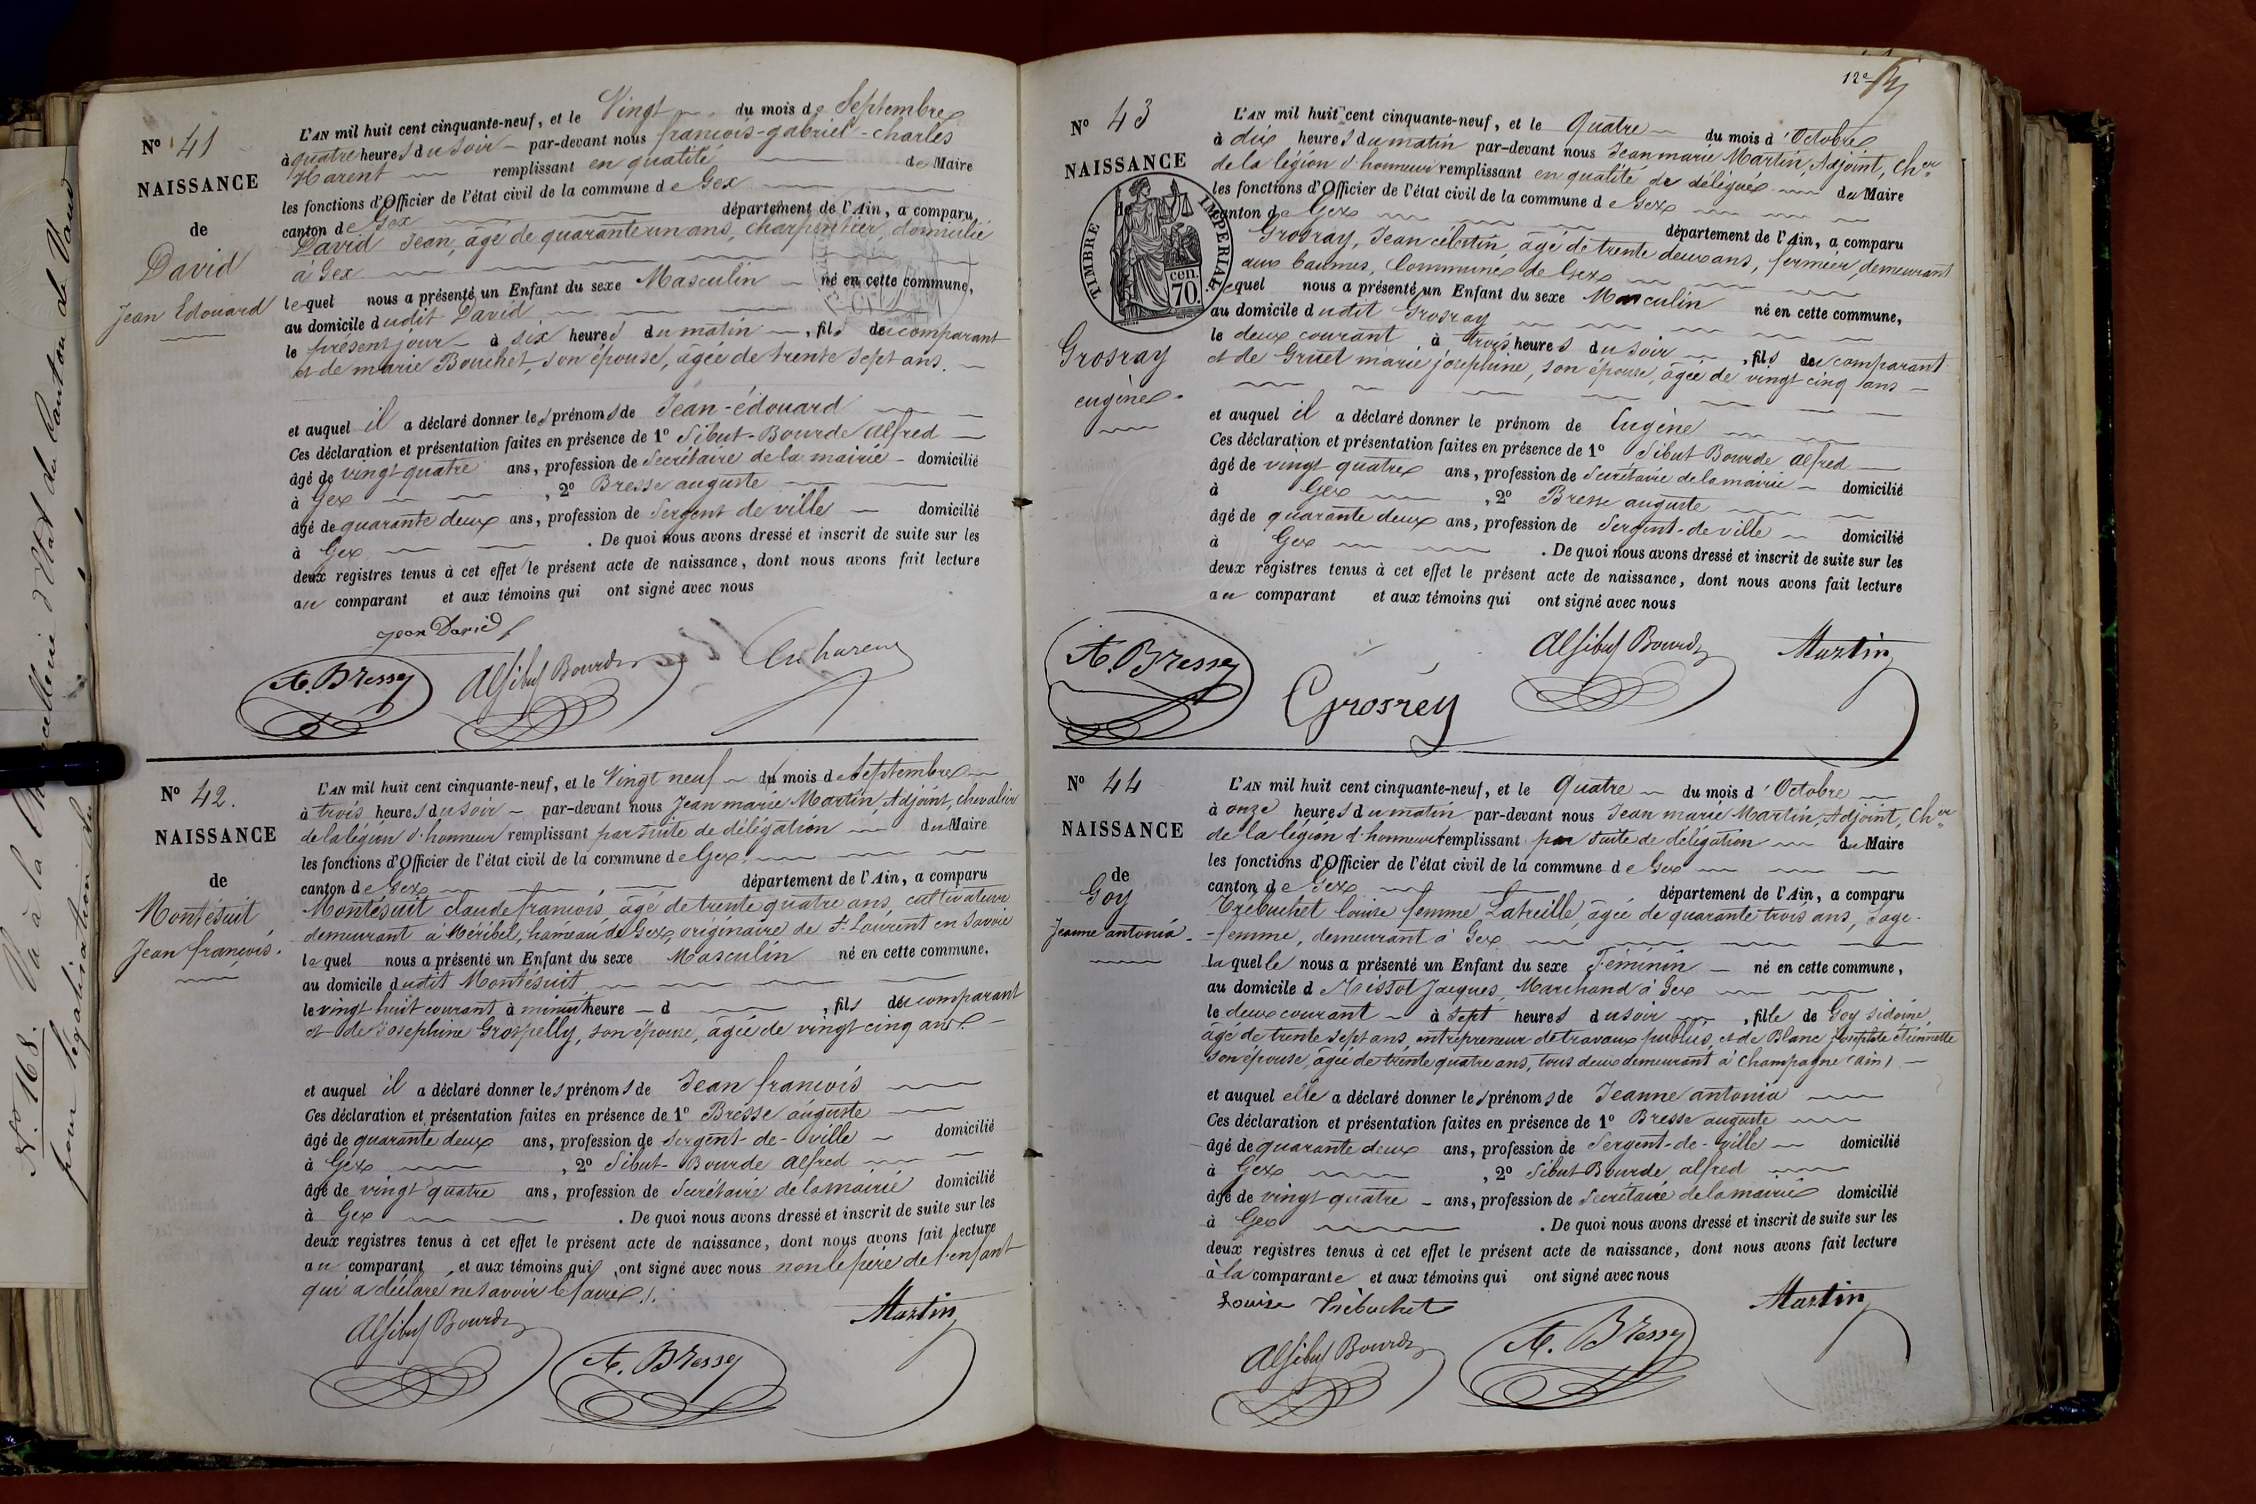 N° 41
NAISSANCE
de
David
Jean Edouard
L'AN mil huit cent cinquante-neuf, et le Vingt du mois de Septembre
à quatre heures du soir par-devant nous françois-gabriel-charles
Harent remplissant en qualité de Maire
les fonctions d'Officier de l'état civil de la commune de Gex
canton de Gex département de l'Ain, a comparu
David Jean, âgé de quarante un ans, charpentier, domicilié
à Gex
lequel nous a présenté un Enfant du sexe Masculin né en cette commune,
au domicile dudit David
le présent jour à six heures du matin, fils du comparant
et de marie Bouchet, son épouse, âgée de trente sept ans.
et auquel il a déclaré donner les prénoms de Jean-édouard
Ces déclaration et présentation faites en présence de 1° Sibut-Bourde Alfred
âgé de vingt quatre ans, profession de Secrétaire de la mairie domicilié
à Gex, 2° Bresse auguste
âgé de quarante deux ans, profession de Sergent de ville domicilié
à Gex. De quoi nous avons dressé et inscrit de suite sur les
deux registres tenus à cet effet le présent acte de naissance, dont nous avons fait lecture
au comparant et aux témoins qui ont signé avec nous
Jean David
A. Bresse Alf Sibut Bourde Ch harent
N° 42.
NAISSANCE
de
Montésuit
Jean françois.
L'AN mil huit cent cinquante-neuf, et le Vingt neuf du mois de Septembre
à trois heures du soir par-devant nous Jean marie Martin, Adjoint, chevalier
de la légion d'honneur remplissant par suite de délégation du Maire
les fonctions d'Officier de l'état civil de la commune de Gex
canton de Gex département de l'Ain, a comparu
Montésuit claude françois, âgé de trente quatre ans, cultivateur
demeurant à Méribel, hameau de Gex, originaire de St Laurent en Savoie
lequel nous a présenté un Enfant du sexe Masculin né en cette commune,
au domicile dudit Montésuit
le vingt huit courant à minuit heure d , fils du comparant
et de Josephine Grospelly, son épouse, âgée de vingt cinq ans.
et auquel il a déclaré donner les prénoms de Jean françois
Ces déclaration et présentation faites en présence de 1° Bresse auguste
âgé de quarante deux ans, profession de Sergent-de-ville domicilié
à Gex, 2° Sibut-Bourde Alfred
âgé de vingt quatre ans, profession de Secrétaire de la mairie domicilié
à Gex. De quoi nous avons dressé et inscrit de suite sur les
deux registres tenus à cet effet le présent acte de naissance, dont nous avons fait lecture
au comparant, et aux témoins qui ont signé avec nous non le père de l'enfant
qui a déclaré ne savoir le faire.
Alf Sibut Bourde A. Bresse Martin
12e
N° 43
NAISSANCE
de
TIMBRE IMPERIAL
cen. 70.
Grosray
eugène.
L'AN mil huit cent cinquante-neuf, et le Quatre du mois d'Octobre
à dix heures du matin par-devant nous Jean marie Martin, Adjoint, Cher
de la légion d'honneur remplissant en qualité de délégué du Maire
les fonctions d'Officier de l'état civil de la commune de Gex
canton de Gex département de l'Ain, a comparu
Grosray, Jean célestin, âgé de trente deux ans, fermier, demeurant
aux baumes, Commune de Gex
lequel nous a présenté un Enfant du sexe Masculin né en cette commune,
au domicile dudit Grosray
le deux courant, à trois heures du soir, fils du comparant
et de Gruet marie joséphine, son épouse, âgée de vingt cinq ans
et auquel il a déclaré donner le prénom de Eugène
Ces déclaration et présentation faites en présence de 1° Sibut Bourde Alfred
âgé de vingt quatre ans, profession de Secrétaire de la mairie domicilié
à Gex, 2° Bresse auguste
âgé de quarante deux ans, profession de Sergent-de-ville domicilié
à Gex. De quoi nous avons dressé et inscrit de suite sur les
deux registres tenus à cet effet le présent acte de naissance, dont nous avons fait lecture
au comparant et aux témoins qui ont signé avec nous
A. Bresse Grosrey Alf Sibut Bourde Martin
N° 44
NAISSANCE
de
Goy
Jeanne antonia
L'AN mil huit cent cinquante-neuf, et le Quatre du mois d'Octobre
à onze heures du matin par-devant nous Jean marie Martin, Adjoint, Cher
de la légion d'honneur remplissant par suite de délégation du Maire
les fonctions d'Officier de l'état civil de la commune de Gex
canton de Gex département de l'Ain, a comparu
Trébuchet louise femme Latreille, âgée de quarante trois ans, Sage-
-femme, demeurant à Gex
laquelle nous a présenté un Enfant du sexe Féminin né en cette commune,
au domicile d Jacques, Marchand à Gex
le deux courant à sept heures du soir, fille de Goy sidoine,
âgé de trente sept ans, entrepreneur de travaux publics, et de Blanc Etiennette
son épouse, âgée de trente quatre ans, tous deux demeurant à Champagne (ain)
et auquel elle a déclaré donner les prénoms de Jeanne antonia
Ces déclaration et présentation faites en présence de 1° Bresse auguste
âgé de quarante deux ans, profession de Sergent-de-ville domicilié
à Gex, 2° Sibut Bourde alfred
âgé de vingt quatre ans, profession de Secrétaire de la mairie domicilié
à Gex. De quoi nous avons dressé et inscrit de suite sur les
deux registres tenus à cet effet le présent acte de naissance, dont nous avons fait lecture
à la comparante et aux témoins qui ont signé avec nous
Louise Trébuchet Martin
Alf Sibut Bourde A. Bresse
N° 168. Vu à la Chancellerie d'Etat du Canton de Vaud
pour légalisation